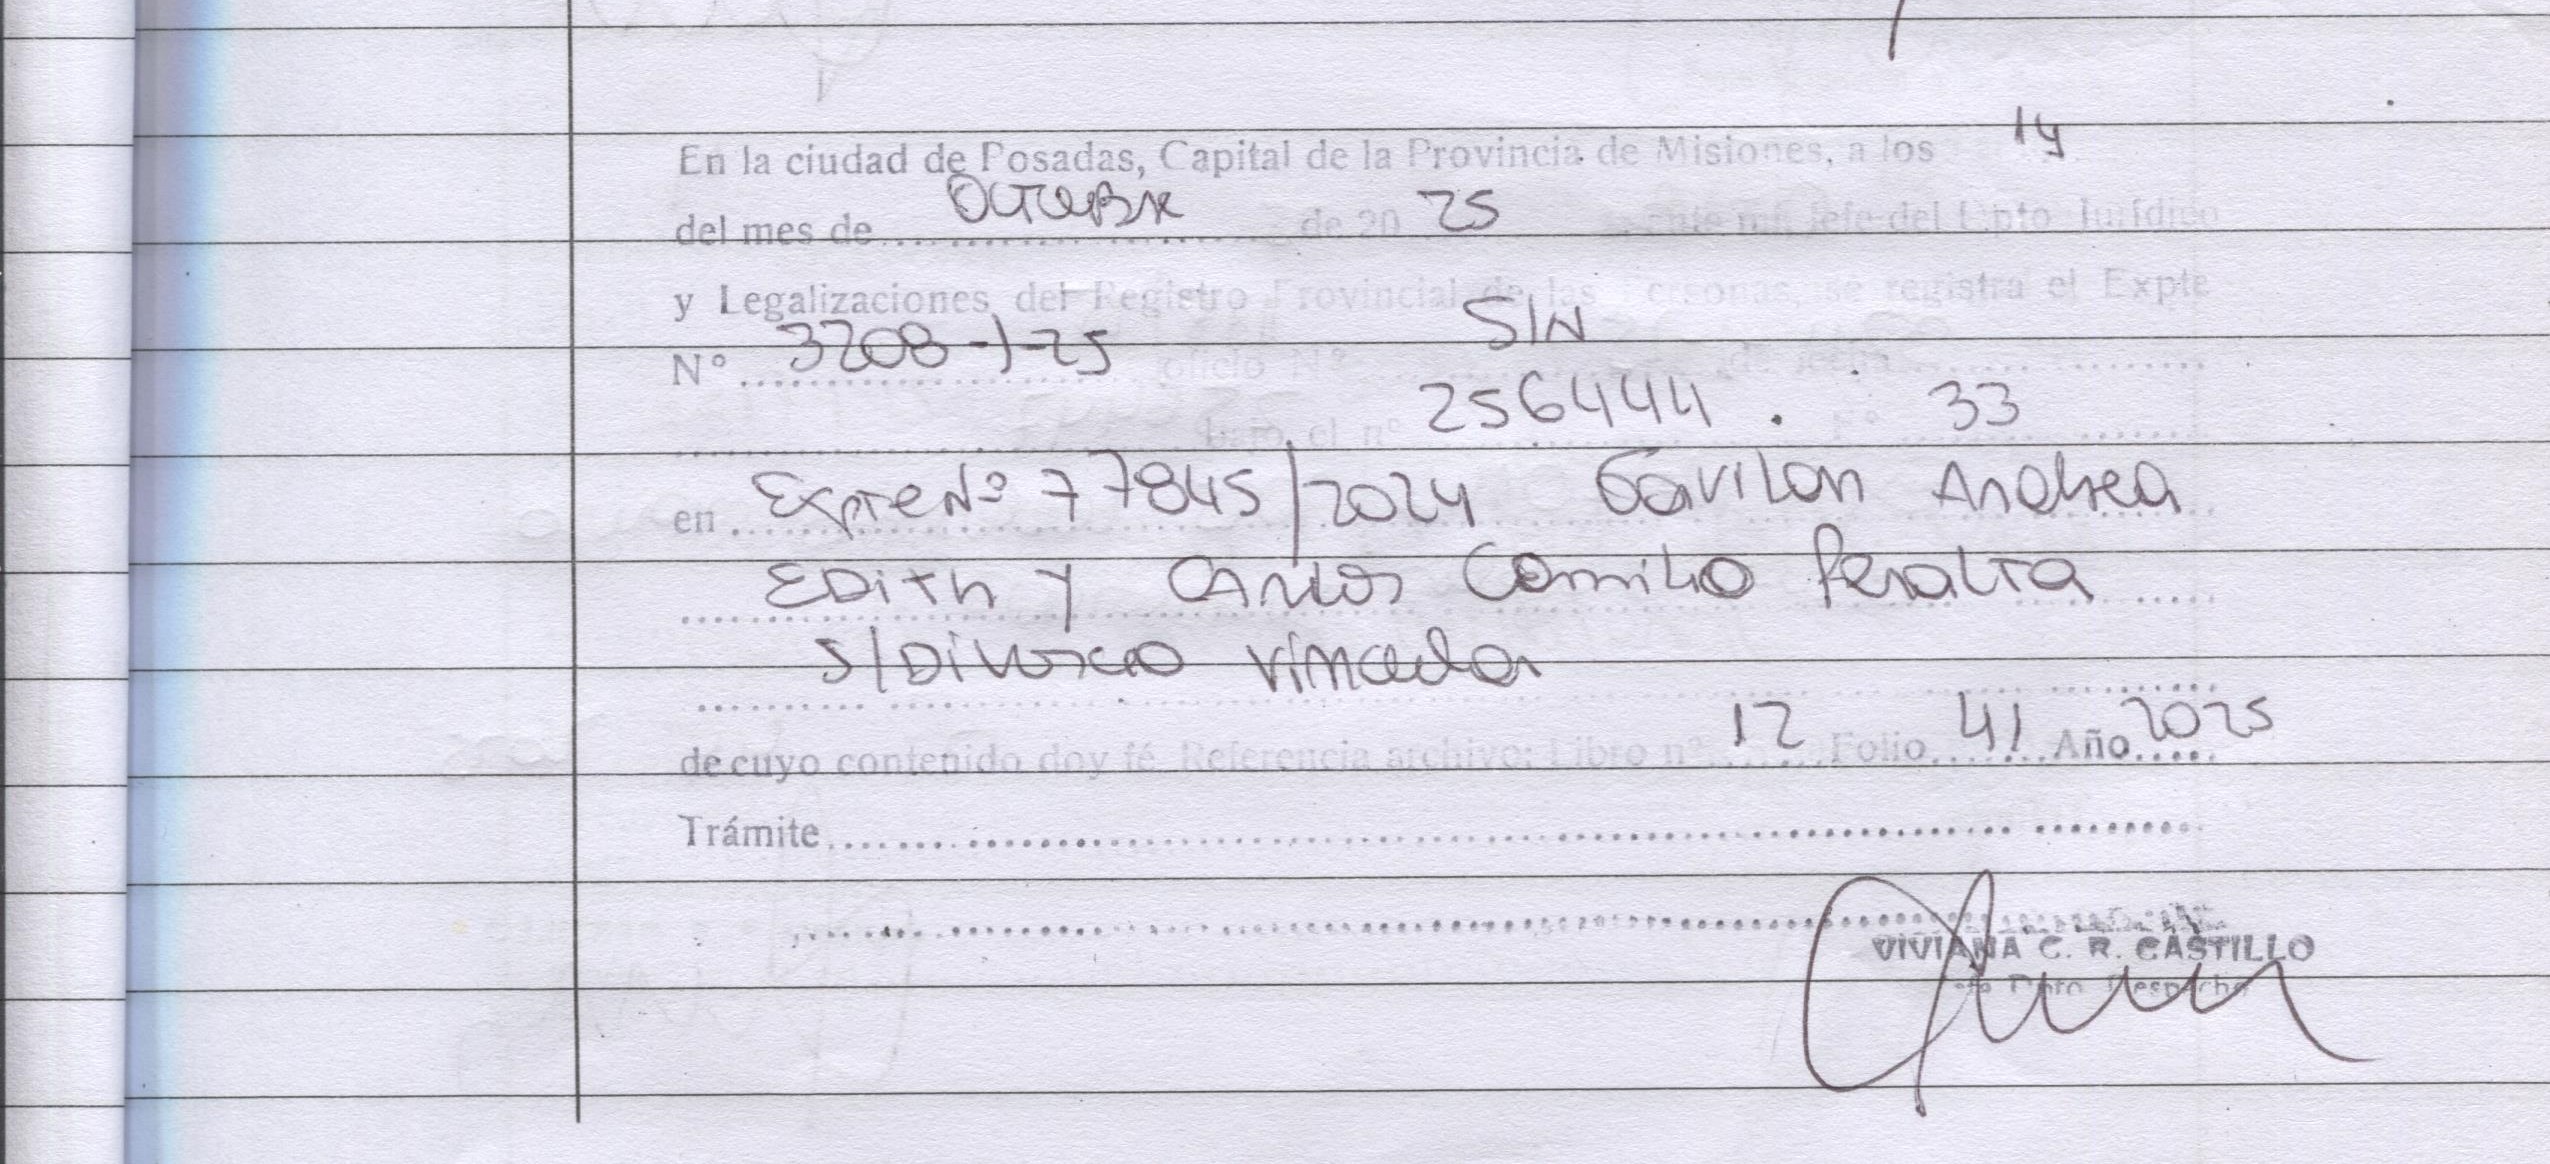 En la ciudad de Posadas, Capital de la Provincia de Misiones, a los 14
del mes de Octubre de 20 25 ante mí, Jefe del Dpto Jurídico
y Legalizaciones del Registro Provincial de las Personas, se registra el Expte
N° 3208-J-25 oficio N° S/N de fecha
bajo el n° 256444. N° 33
en Expte N° 77845/2024 Gavilan Andrea
Edith y Carlos Camilo Peralta
S/Divorcio Vincular
de cuyo contenido doy fé Referencia archivo: Libro n° 12 Folio 41 Año 2025
Trámite
VIVIANA C. R. CASTILLO
Dpto Despacho